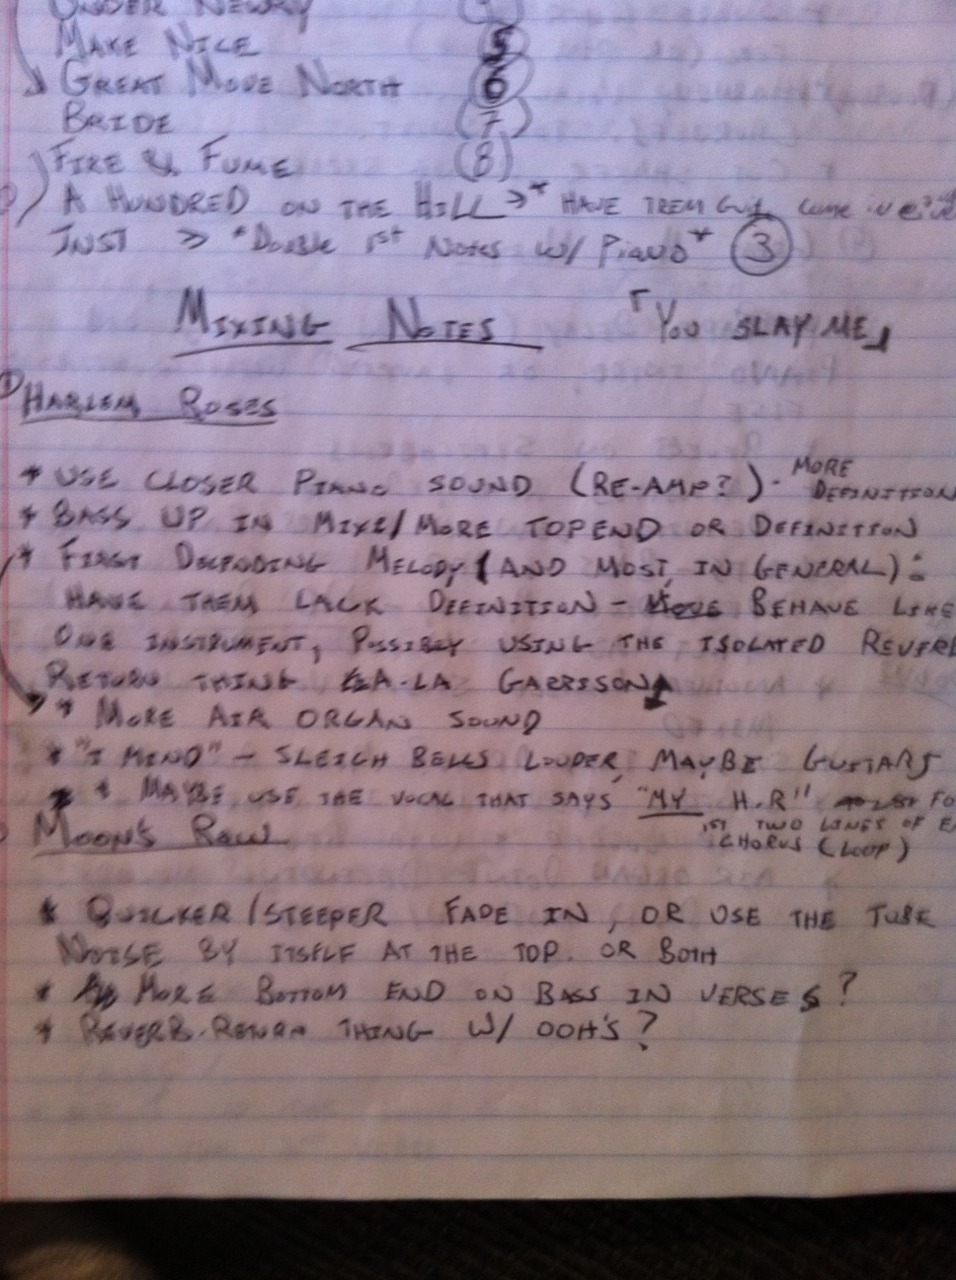 UNDER NEWRY
MAKE NICE 5
GREAT MOVE NORTH 6
BRIDE (7)
FIRE & FUME (8)
A HUNDRED ON THE HILL >* HAVE TREM GUIT come in
INST > *Double 1st NOTES W/ PIANO* 3
MIXING NOTES 「YOU SLAY ME」
① HARLEM ROSES
* USE CLOSER PIANO SOUND (RE-AMP?) - MORE DEFINITION
* BASS UP IN MIX/MORE TOP END OR DEFINITION
* FIRST MELODY (AND MOST, IN GENERAL):
HAVE THEM LACK DEFINITION - BEHAVE LIKE
ONE INSTRUMENT, POSSIBLY USING THE ISOLATED REVERB
RETURN THING A-LA GARRISON
* MORE AIR ORGAN SOUND
* "I MIND" - SLEIGH BELLS LOUDER, MAYBE GUITARS
* MAYBE USE THE VOCAL THAT SAYS "MY H.R" FO
1ST TWO LINES OF EA
CHORUS (LOOP)
MOON'S RAW
* QUICKER/STEEPER FADE IN, OR USE THE TUBE
NOISE BY ITSELF AT THE TOP. OR BOTH
* MORE BOTTOM END ON BASS IN VERSES?
* REVERB-RETURN THING W/ OOH'S?